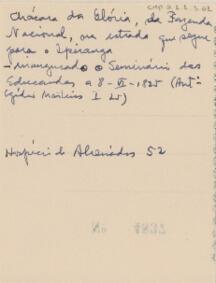 Chácara da Glória, da Fazenda
Nacional, na estrada que segue
para o Ipiranga
- inaugurado o Seminário das
Educandas a 8-VI-1825 (Ant.º
Egídio Martins I 25)
Hospício de Alienados 52